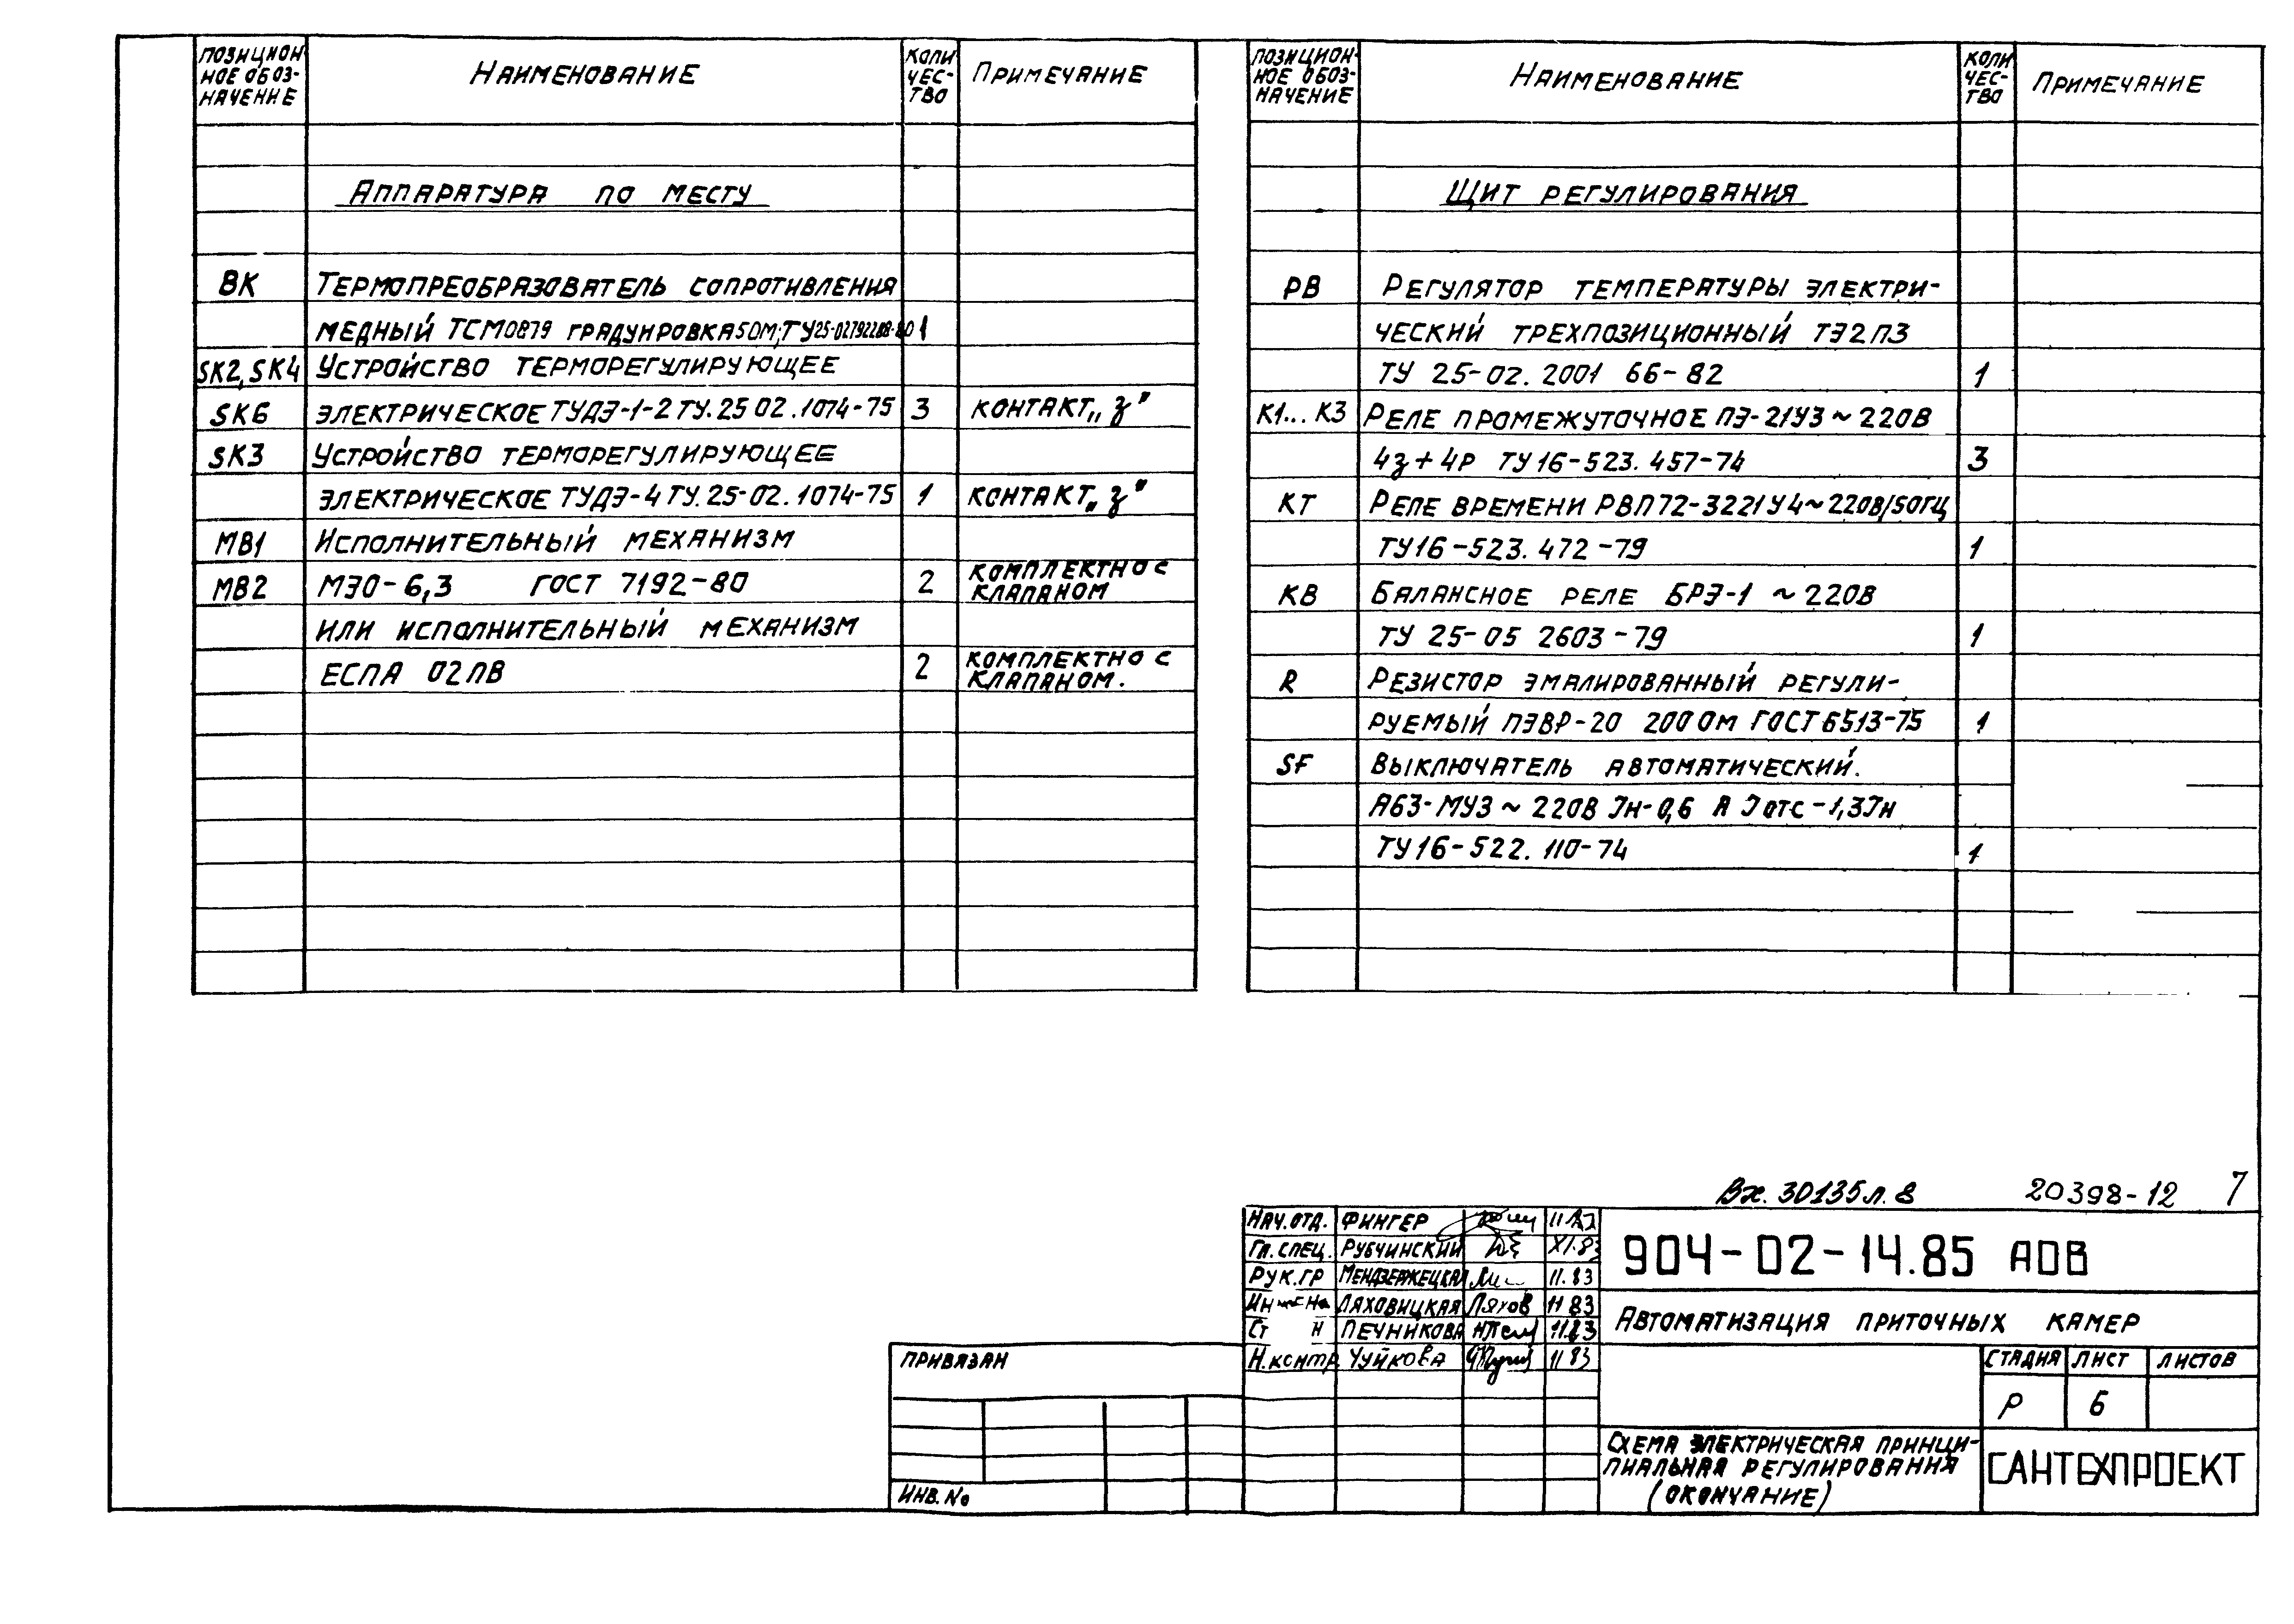 ПОЗИЦИОН-
НОЕ ОБОЗ-
НАЧЕНИЕ
НАИМЕНОВАНИЕ
КОЛИ
ЧЕС-
ТВО
ПРИМЕЧАНИЕ
АППАРАТУРА ПО МЕСТУ
ВК ТЕРМОПРЕОБРАЗОВАТЕЛЬ СОПРОТИВЛЕНИЯ
МЕДНЫЙ ТСМ0879 ГРАДУИРОВКА 50М; ТУ25-02792288-80 1
SK2, SK4 УСТРОЙСТВО ТЕРМОРЕГУЛИРУЮЩЕЕ
SK6 ЭЛЕКТРИЧЕСКОЕ ТУДЭ-1-2 ТУ.25 02.1074-75 3 КОНТАКТ „З"
SK3 УСТРОЙСТВО ТЕРМОРЕГУЛИРУЮЩЕЕ
ЭЛЕКТРИЧЕСКОЕ ТУДЭ-4 ТУ.25-02.1074-75 1 КОНТАКТ „З"
МВ1 ИСПОЛНИТЕЛЬНЫЙ МЕХАНИЗМ
МВ2 МЭО-6,3 ГОСТ 7192-80 2 КОМПЛЕКТНО С
КЛАПАНОМ
ИЛИ ИСПОЛНИТЕЛЬНЫЙ МЕХАНИЗМ
ЕСПА 02ПВ 2 КОМПЛЕКТНО С
КЛАПАНОМ.
ПОЗИЦИОН-
НОЕ ОБОЗ-
НАЧЕНИЕ
НАИМЕНОВАНИЕ
КОЛИ
ЧЕС-
ТВО
ПРИМЕЧАНИЕ
ЩИТ РЕГУЛИРОВАНИЯ
РВ РЕГУЛЯТОР ТЕМПЕРАТУРЫ ЭЛЕКТРИ-
ЧЕСКИЙ ТРЕХПОЗИЦИОННЫЙ ТЭ2П3
ТУ 25-02.2001 66-82 1
К1... К3 РЕЛЕ ПРОМЕЖУТОЧНОЕ ПЭ-21У3 ~ 220В
4З + 4Р ТУ16-523.457-74 3
КТ РЕЛЕ ВРЕМЕНИ РВП72-3221У4 ~ 220В/50ГЦ
ТУ16-523.472-79 1
КВ БАЛАНСНОЕ РЕЛЕ БРЭ-1 ~ 220В
ТУ 25-05 2603-79 1
R РЕЗИСТОР ЭМАЛИРОВАННЫЙ РЕГУЛИ-
РУЕМЫЙ ПЭВР-20 200 ОМ ГОСТ 6513-75 1
SF ВЫКЛЮЧАТЕЛЬ АВТОМАТИЧЕСКИЙ.
А63-МУ3 ~ 220В Jн-0,6 А J отс-1,3Jн
ТУ16-522.110-74 1
Вх. 30135 л. 8 20398-12 7
НАЧ.ОТД. ФИНГЕР
ГЛ.СПЕЦ. РУБЧИНСКИЙ XI.83
РУК.ГР МЕНДЗЕРЖЕЦКАЯ 11.83
ЛЯХОВИЦКАЯ Ляхов 11 83
СТ Н ПЕЧНИКОВА 11.83
Н.КОНТР ЧУЙКОВА 11 83
904-02-14.85 АОВ
АВТОМАТИЗАЦИЯ ПРИТОЧНЫХ КАМЕР
СТАДИЯ ЛИСТ ЛИСТОВ
Р 6
СХЕМА ЭЛЕКТРИЧЕСКАЯ ПРИНЦИ-
ПИАЛЬНАЯ РЕГУЛИРОВАНИЯ
(ОКОНЧАНИЕ)
САНТЕХПРОЕКТ
ПРИВЯЗАН
ИНВ. No